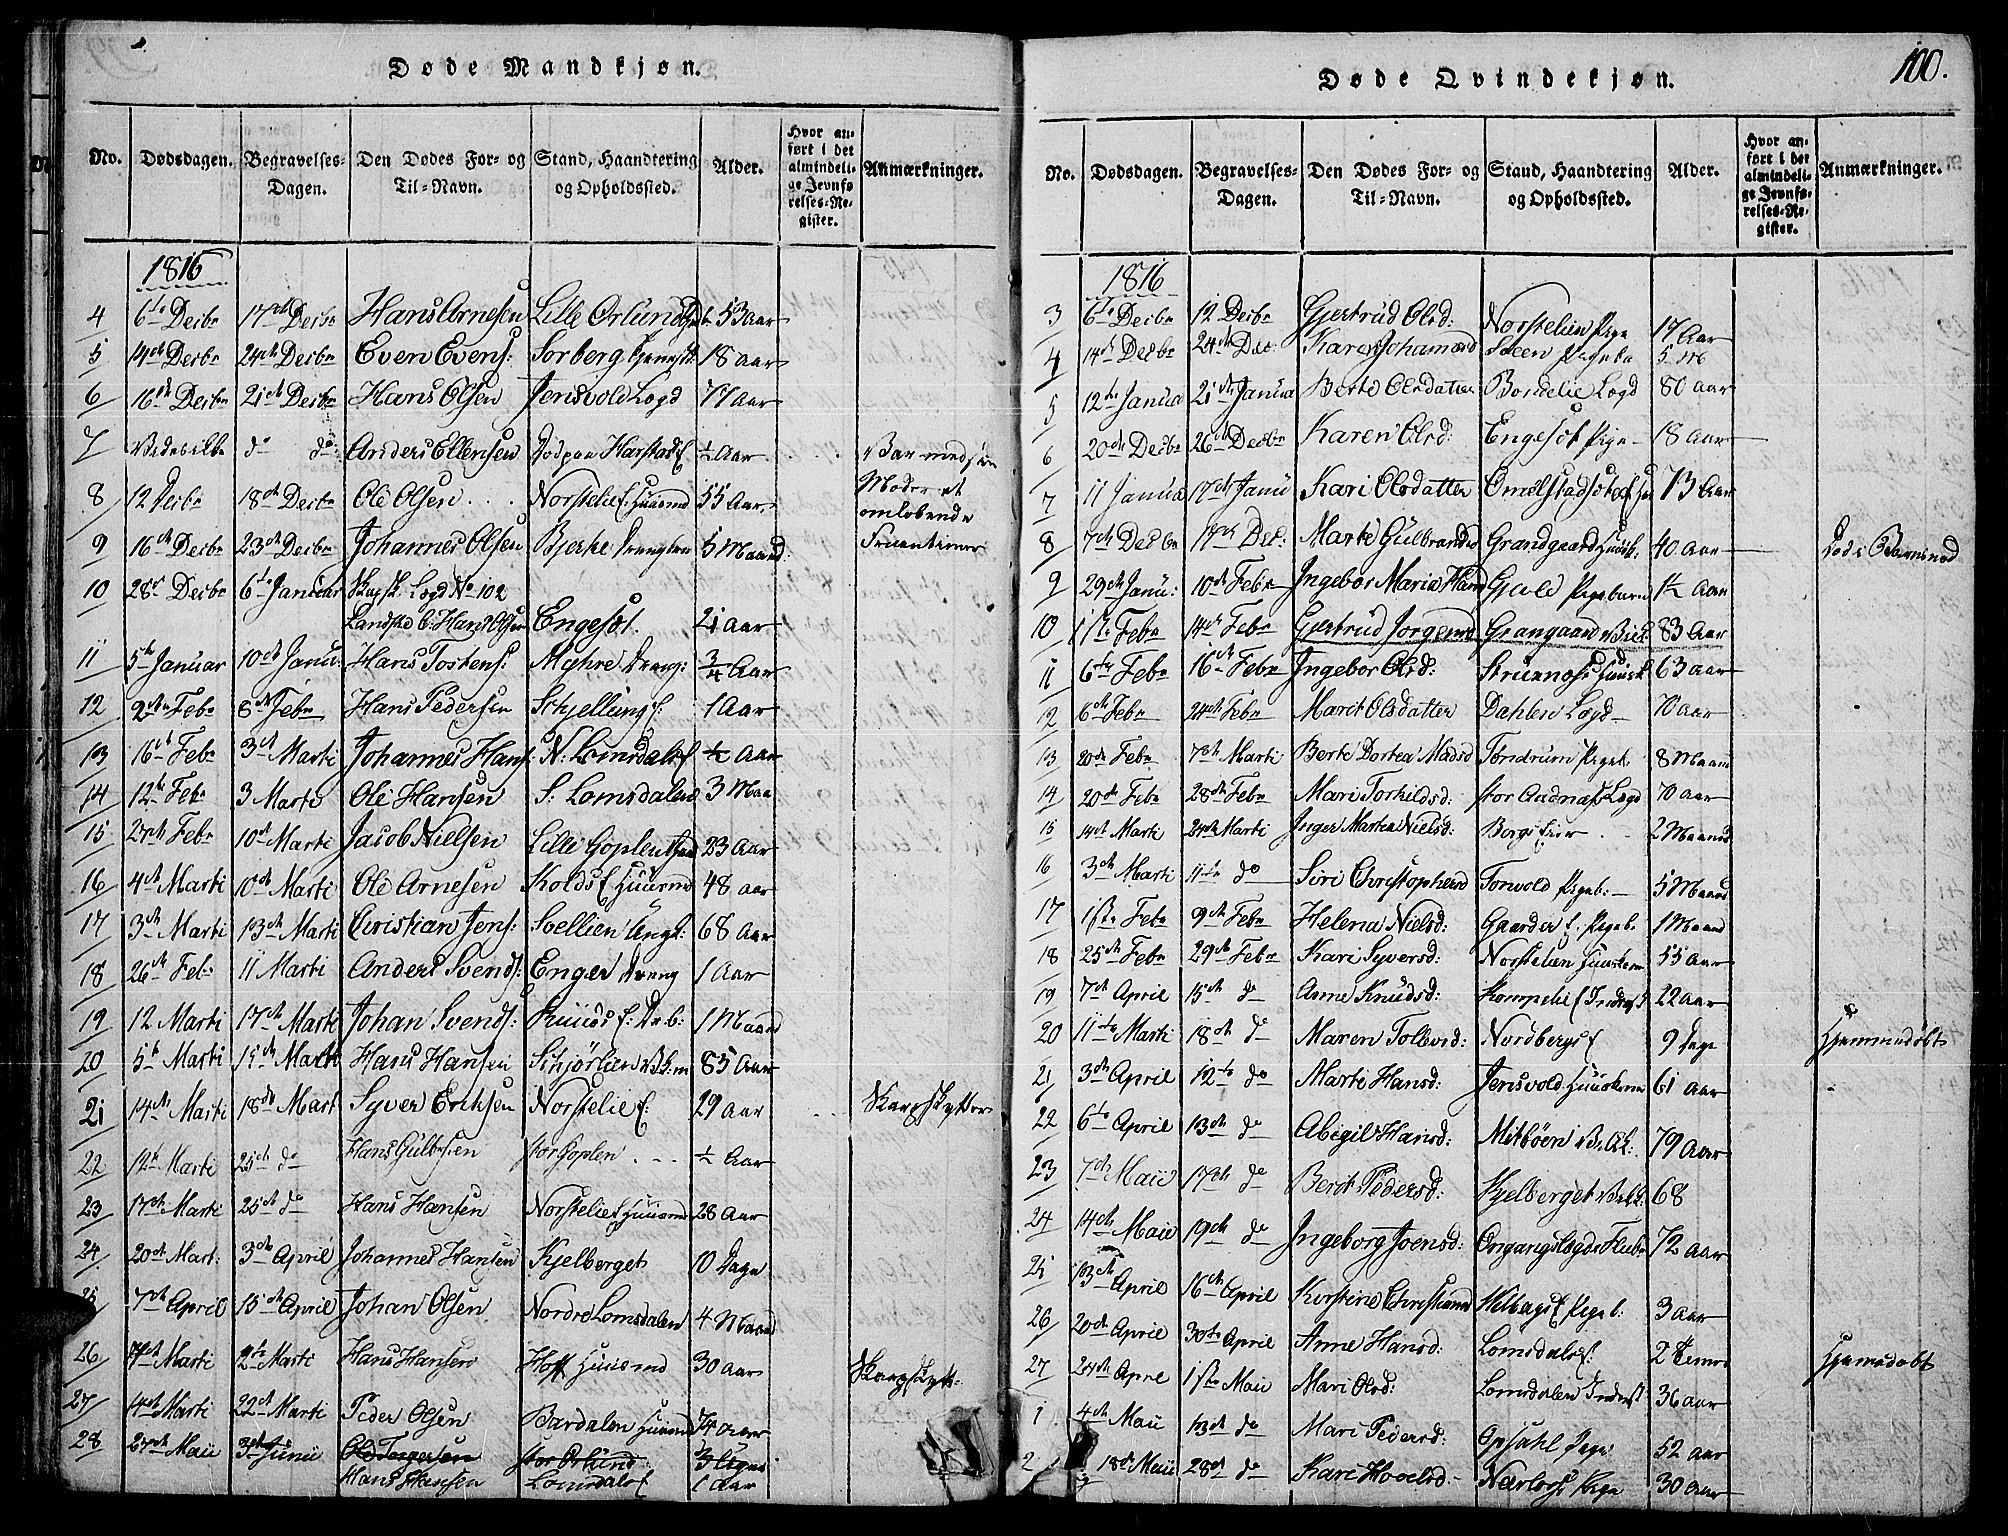 Døde Mandkjøn.
No. Dødsdagen. Begravelses-Dagen. Den Dødes For- og Til-Navn. Stand, Haandtering og Opholdssted. Alder. Hvor anført i det almindelige Jevnførelses-Register. Anmærkninger.
1816
4 6te Decbr 17de Decbr Hans Arnesen Lille Orlund 53 Aar
5 14de Decbr 24de Decbr Even Evens: Sorberg 18 aar
6 16de Decbr 21de Decbr Hans Olsen Jensvold Legd 77 Aar
7 do do: Anders Ellensen Harstad ½ Aar Bar med sin
8 12 Decbr 18de Decbr Ole Olsen Norstelie Huusmd 55 Aar Moder et omløbende
9 16de Decbr 23de Decbr Johannes Olsen Bjerke 5 Maand: Fruentimer
10 28de Decbr 6te Januar Legd No 102
Hans Olsen Engesøt. 21 aar
11 5te Januar 10de Janu: Hans Tostens: Myhre Dreng: ¾ Aar
12 2den Febr 8de Febr Hans Pedersen Schjellung 1 Aar
13 16de Febr 3de Marti Johannes Hans: N. Lomsdals ½ Aar
14 12te Febr 3 Marti Ole Hansen S: Lomsdalen 3 Maa
15 27de Febr 10de Marti Jacob Nielsen Lille Goplen 23 Aar
16 4de Marti 10de Marti Ole Arnesen Kolds Huusmd 48 aar
17 3de Marti 13de Marti Christian Jens: Soellien 68 Aar
18 26de Febr 11 Marti Anders Svends: Enger Dreng 1 Aar
19 12 Marti 17de Marti Johan Svends: 1 Maand
20 5te Marti 15de Marti Hans Hansen Schjørlien 85 Aar
21 14de Marti 18de Mart Syver Eriksen Norstelie 29 Aar Skarpskytter
22 12te Marti 25de do Hans Gulbsen stor Goplen ½ Aar
23 17de Marti 25de do Hans Hansen Norstelie Huusmd 28 Aar
24 20de Mart: 3de April Johannes Hansen Kjelberget 10 Dage
25 7de April 15de April Johan Olsen Nordre Lomsdalen 4 Maand
26 Marti Marti Hans Hansen Hoff Huusmd 30 Aar Skarpskytt:
27 4de Marti 22de Marti Peder Olsen Bardalen Huusmd 74 Aar
28 27de Maii 3de Junii Ole Torgersen stor Orlund 3 Uger
Hans Hansen Lomsdals 1 Aar
Døde Qvindekjøn.
100.
No. Dødsdagen. Begravelses-Dagen. Den Dødes For- og Til-Navn. Stand, Haandtering og Opholdssted. Alder. Hvor anført i det almindelige Jevnførelses-Register. Anmærkninger.
1816
3 6te Decbr 12 Decbr Gjertrud Olsd: Norstelien Pige 17 Aar
4 14de Decbr 24de Dec: Karen Johannesd Steen 5 M
5 12te Janua 21de Janua Berte Olsdatter Bordelie Legd 80 aar
6 20de Decbr 26de Decbr Karen Olsd: Engesøt Pige 18 aar
7 11 Janua 17de Janu Kari Olsdatter 73 Aar
8 7de Decbr 14de Dec: Marte Gulbrandsd Grandgaard 40 Aar Død i Barnsnød
9 29de Janu: 10de Febr Ingebor Maria Hansd Pigebarn 1½ Aar
10 1ste Febr 14de Febr Gjertrud Jorgensd Grangaard 83 Aar
11 6te Febr 16de Febr Ingebor Olsd: 63 aar
12 6te Febr 24de Febr Marit Olsdatter Dahlen Legd 70 aar
13 20de Febr 7de Marti Berte Dortea Madsd Tondrum Pigeb. 8 Maan
14 20de Febr 28de Febr Mari Torkildsd: stor Aadnæs Legd 70 aar
15 14de Marti 24de Marti Inger Martea Nielsd: 2 Maand
16 3de Marti 11te do Siri Christophersd Tonvold Pigeb: 5 Maand
17 1ste Febr 9de Febr Helena Nielsd: Gaarder Pigeb. 1 Maand
18 25de Febr 29de Febr Kari Syversd: Norstelien 55 Aar
19 7de April 15de do Anne Knudsd: 22 aar
20 11te Marti 18de do Maren Tollevsd: Nordbergs 9 Dage Hjemmedøbt
21 3de April 12te do Marte Hansd: Jensvold 61 aar
22 6te April 13de do Abigil Hansd: Mitbøen 79 Aar
23 7de Maii 17de do Berit Pedersd: Kjelberget 68
24 14de Maii 19de do Ingeborg Joensd: Omgangslægd 72 aar
25 13de April 16de April Kirstine Christiansd Pigeb: 3 aar
26 20de April 30te April Anne Hansd: Lomsdals: 2 Hjemedøbt
27 24de April 1ste Maii Mari Olsd: Lomsdalen Inderst 36 aar
1 4de Maii 13de do Mari Pedersd: Opsahl Pige 52 aar
2 18de Maii 28de do Kari Hovelsd: Pige 30 aar